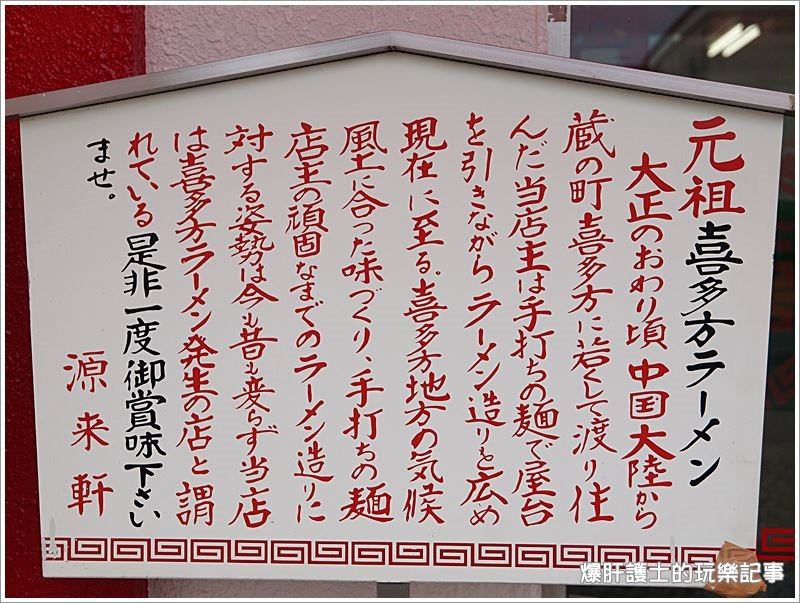 元祖 喜多方ラーメン
大正のおわり頃 中国大陸から
蔵の町喜多方に若くして渡り住
んだ当店主は手打ちの麺で屋台
を引きながらラーメン造りを広め
現在に至る。喜多方地方の気候
風土に合った味づくり、手打ちの麺
店主の頑固なまでのラーメン造りに
対する姿勢は今も昔も変らず当店
は喜多方ラーメン発生の店と謂
れている 是非一度御賞味下さい
ませ。
源来軒
爆肝護士的玩樂記事